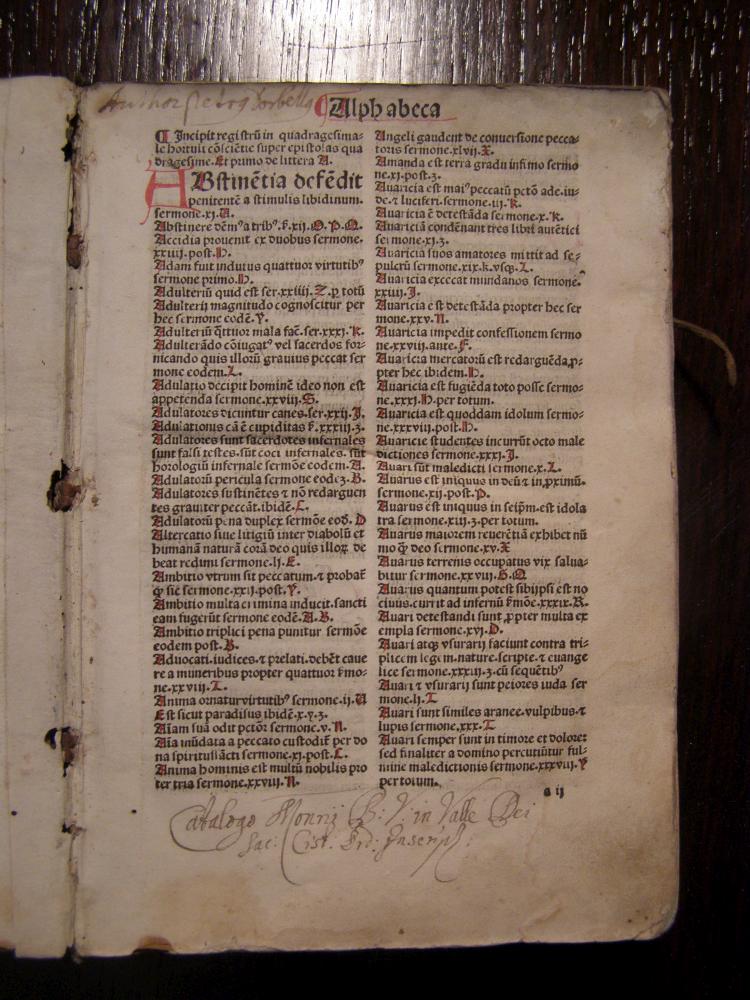 Alphabeca
¶ Incipit registrū in quadragesima-
le hortuli cōsciētie super epistolas qua
dragesime. Et primo de littera A.
ABstinētia defēdit
penitentē a stimulis libidinum.
sermone.xj.A.
Abstinere dēmꝰ a tribꝰ.ẜ.xij.O.P.Q.
Accidia prouenit ex duobus sermone.
xxiiij.post.H.
Adam fuit indutus quattuor virtutibꝰ
sermone primo.H.
Adulteriū quid est ser.xxiiij.Z.ꝑ totū
Adulterij magnitudo cognoscitur per
hec sermone eodē.Y.
Adulteriū q̄ttuor mala fac̄.ser.xxxj.K.
Adulterādo cōiugatꝰ vel sacerdos for-
nicando quis illorū grauius peccat ser
mone eodem.L.
Adulatio decipit hominē ideo non est
appetenda sermone.xxviij.S.
Adulatores dicuntur canes.ser.xxij.J.
Adulationis cā ē cupiditas ẜ.xxxiij.3.
Adulatores sunt sacerdotes infernales
sunt falsi testes.sūt coci infernales. sūt
horologiū infernale sermōe eodem.A.
Adulatorū pericula sermone eodē3.B.
Adulatores sustinētes ⁊ nō redarguen
tes grauiter peccāt.ibidē.C.
Adulatorū pena duplex sermōe eod̄. D
Altercatio siue litigiū inter diabolū et
humanā naturā corā deo quis illoꝝ de
beat redimi sermone.lj.E.
Ambitio vtrum sit peccatum.⁊ probat̄
ꝙ sic sermone.xxij.post.Y.
Ambitio multa crimina inducit.sancti
eam fugerūt sermone eodē.A.B.
Ambitio triplici pena punitur sermōe
eodem post.B.
Aduocati.iudices.⁊ prelati.debēt caue
re a muneribus propter quattuor ẜmo-
ne.xxviij.T.
Anima ornatur virtutibꝰ sermone.ij.U
Est sicut paradisus ibidē.x.y.3.
Aīam suā odit pctōr sermone.v.N.
Aīa inūdata a peccato custodit̄ per do
na spiritussācti sermone.xj.post.C.
Anima hominis est multū nobilis pro
ter tria sermone.xxviij.N.
Angeli gaudent de conuersione pecca-
toris sermone.xlvij.X.
Amanda est terra gradu infimo sermo
ne.xj.post.3.
Auaricia est maiꝰ peccatū pctō ade.iu-
de.⁊ luciferi.sermone.iij.K.
Auaricia ē detestāda sermone.x.K.
Auariciā condēnant tres libri autētici
sermone.xj.3.
Auaricia suos amatores mittit ad se-
pulcrū sermone.xix.k.vsqꝫ.L.
Auaricia excecat mundanos sermone.
xxiiij.J.
Auaricia est detestāda propter hec ser
mone.xxv.N.
Auaricia impedit confessionem sermo
ne.xxvij.ante.F.
Auaricia mercatorū est redarguēda,ꝓ-
pter hec ibidem.H.
Auaricia est fugiēda toto posse sermo-
ne.xxxj.H.per totum.
Auaricia est quoddam idolum sermo-
ne.xxxviij.post.H.
Auaricie studentes incurrūt octo male
dictiones sermone.xxxj.J.
Auari sūt maledicti sermone.x.L.
Auarus est iniquus in deū ⁊ in,ꝓximū.
sermone.xij.post.P.
Auarus est iniquus in seipm̄.est idola
tra sermone.xiij.3.per totum.
Auarus maiorem reuerētiā exhibet nū
mo ꝙ̄ deo sermone.xv.X
Auarus terrenis occupatus vix salua-
bitur sermone.xxvij.S.Q.
Auarus quantum potest sibijpsi est no
ciuus.currit ad infernū ẜmōe.xxxix.R.
Auari detestandi sunt ꝓpter multa ex
empla sermone.xvj.D.
Auari atqꝫ vsurarij faciunt contra tri-
plicem legem.nature.scripte.⁊ euange
lice sermone.xxxiij.3.cū sequētibꝰ
Auari ⁊ vsurarij sunt peiores iuda ser
mone.lj.T
Auari sunt similes aranee.vulpibus.⁊
lupis sermone.xxx.T
Auari semper sunt in timore et dolore:
sed finaliter a domino percutiūtur ful-
mine maledictionis sermone.xxxviij.Y
per totum.
a ij
Catalogo Monrij B. V. in Valle Dei
Sac: Cist. Ord: Inscript: